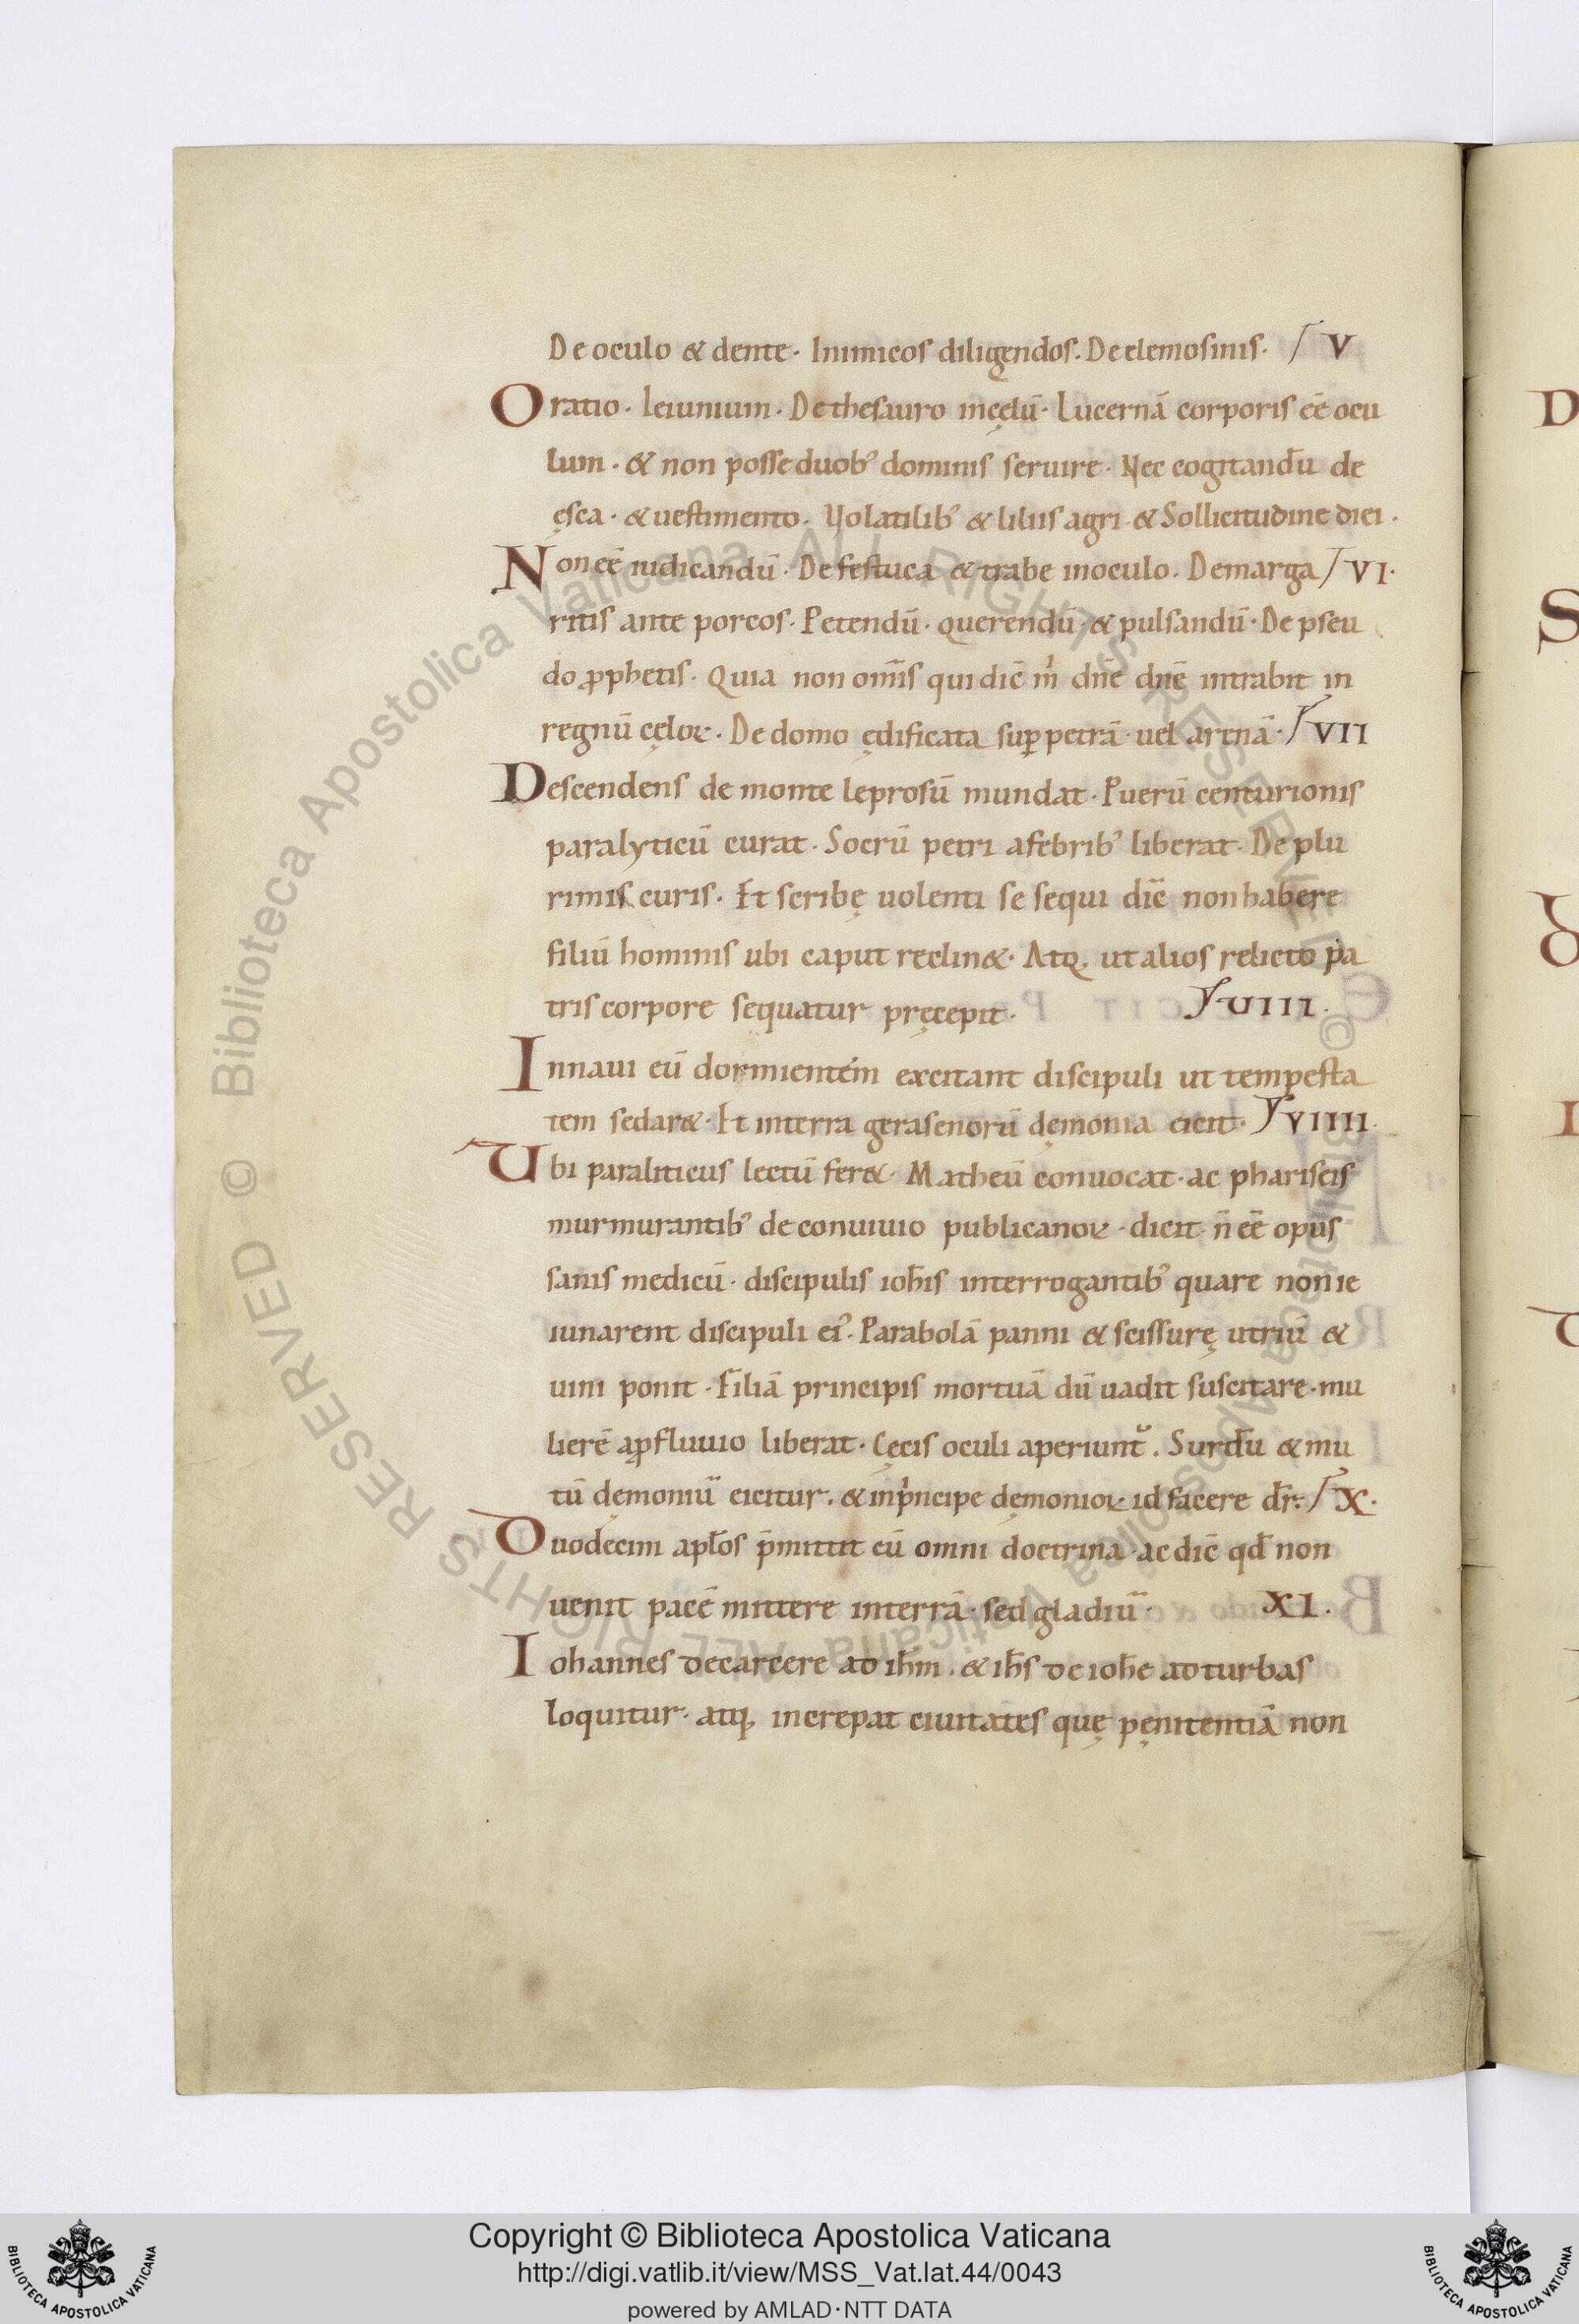 De oculo & dente · Inimicos diligendos. De elemosinis · V
Oratio · Ieiunium · De thesauro in cęlū · Lucernā corporis eē ocu
lum · & non posse duob; dominis seruire · Nec cogitandū de
ęsca · & uestimento · Uolatilib; & liliis agri & Sollicitudine diei ·
Non eē iudicandū · De festuca & trabe in oculo. De marga VI·
ritis ante porcos · Petendū · querendū · & pulsandū · De pseu
do ꝓphetis · Quia non om̄is qui dic̄ m̄ dn̄e dn̄e intrabit in
regnū cęloꝝ · De domo ędificata suꝑ petrā · uel arenā · VII
Descendens de monte leprosū mundat · Puerū centurionis
paralyticū curat · Socrū petri a febrib; liberat · De plu
rimis curis · Et scribę uolenti se sequi dic̄ non habere
filiū hominis ubi caput reclin& · Atq; ut alios relicto pa
tris corpore sequatur pręcepit · VIII·
In naui eū dormientem excitant discipuli ut tempesta
tem sedar& · Et in terra gerasenorū dęmonia eicit · VIIII·
Ubi paraliticus lectū fer& · Matheū conuocat · ac phariseis
murmurantib; de conuiuio publicanoꝝ · dicit n̄ eē opus
sanis medicū · discipulis ioh̄is interrogantib; quare non ie
iunarent discipuli ei; · Parabolā panni & scissurę utriū &
uini ponit · Filiā principis mortuā dū uadit suscitare · mu
lierē a ꝓfluuio liberat · Cęcis oculi aperiunt᷑ · Surdū & mu
tū dęmoniū eicitur · & in pͥncipe dęmonioꝝ id facere dr̄ · X·
Duodecim apl̄os p̄mittit cū omni doctrina · ac dic̄ qd̄ non
uenit pacē mittere in terrā · sed gladiū · XI·
Iohannes de carcere ad ih̄m · & ih̄s de ioh̄e ad turbas
loquitur · atq; increpat ciuitates quę pęnitentiā non
D
S
I
Copyright © Biblioteca Apostolica Vaticana
http://digi.vatlib.it/view/MSS_Vat.lat.44/0043
powered by AMLAD·NTT DATA
BIBLIOTECA APOSTOLICA VATICANA
BIBLIOTECA APOSTOLICA VATICANA
© Biblioteca Apostolica Vaticana ALL RIGHTS RESERVED
© Biblioteca Apostolica Vaticana ALL RIGHTS RESERVED